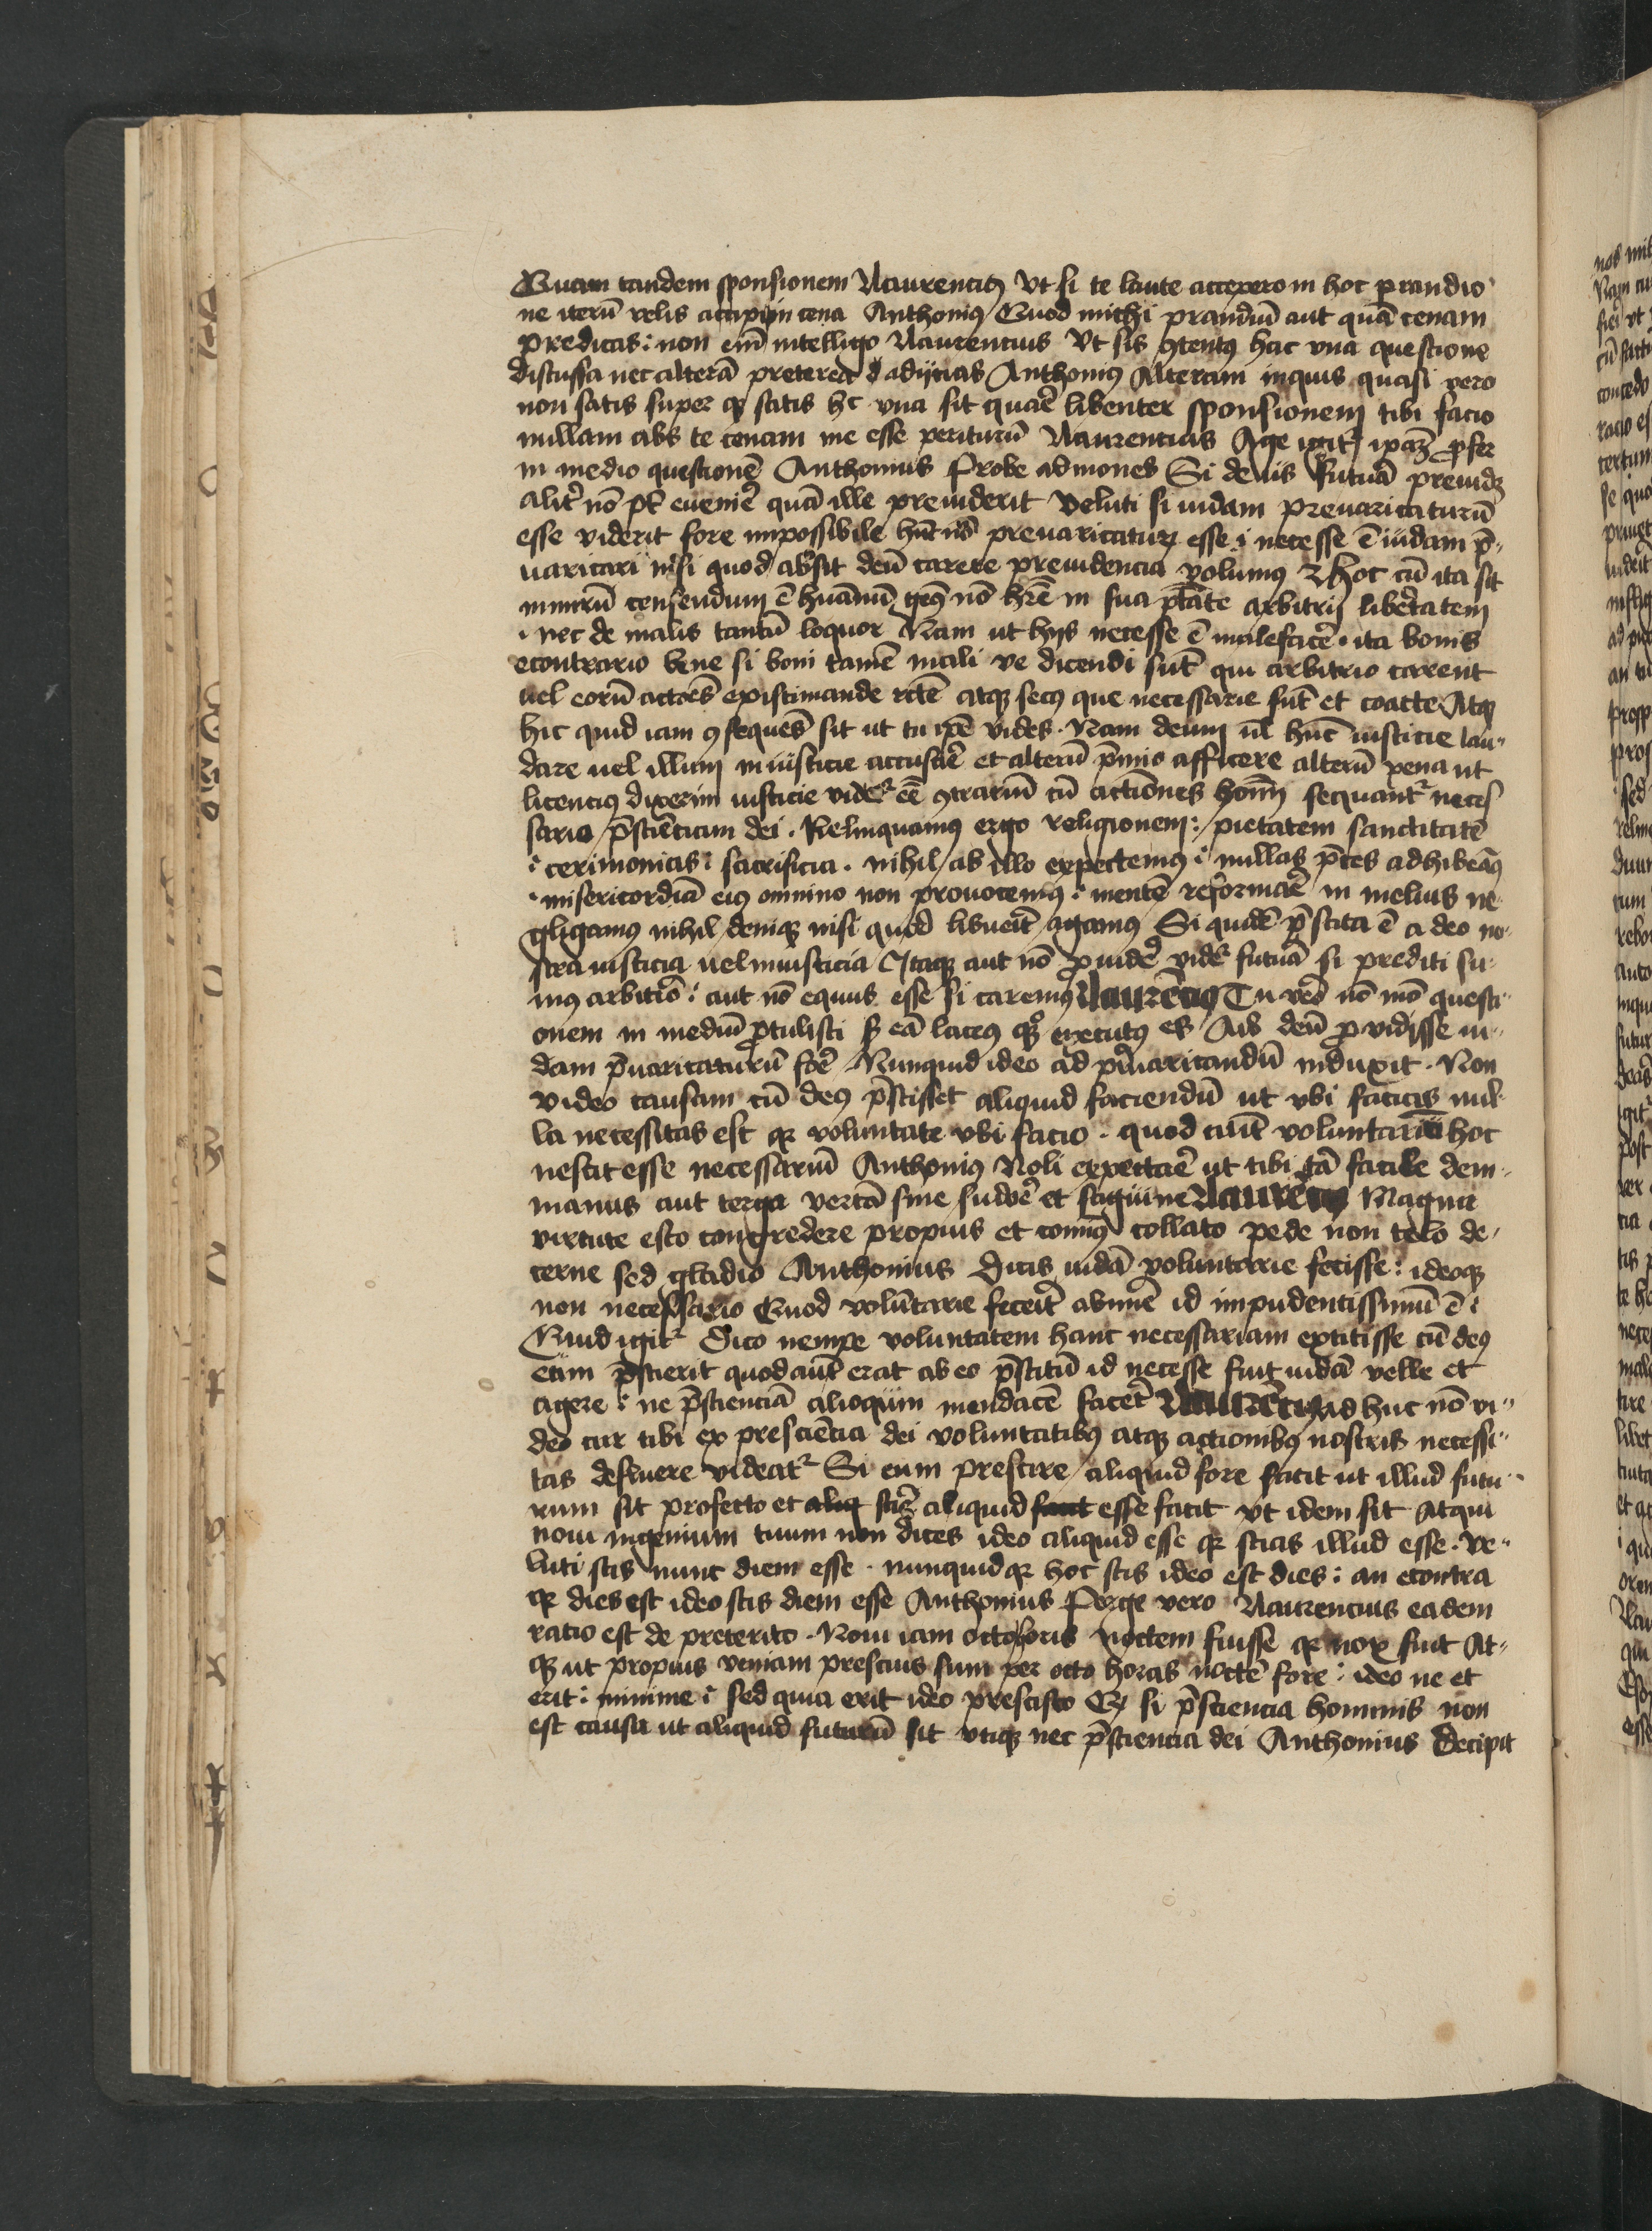 Quam tandem sponsionem Laurencius Vt si te laute accepero in hoc prandio
ne iterū velis accipi in cena Anthonius Quod michi prandiū aut quā cenam
predicas : non em̄ intelligo Laurencius Vt sis ꝯtentus hac vna questione
discussa nec alterā preterea adijcias Anthonius Alteram inquis quasi vero
non satis super qꝫ satis hec vna sit quarē libenter sponsionem tibi facio
nullam abs te cenam me esse periturū Laurencius Age igitr̄ ꝓfer
in medio questionē Anthonius Probe admones Si deus futurā preuidꝫ
alitr̄ nō pt̄ euenire quā ille preuiderit Veluti si iudam preuaricaturū
esse viderit fore impossibile hūc nō preuaricaturū esse i necesse ē iudam p̄-
uaricari nisi quod absit deū carere preuidencia volumus Hoc cū ita sit
nimirū censendum ē huānū genus nō hr̄e in sua ptāte arbitrij libertatem
nec de malis tantū loquor Nam ut hijs necesse ē malefacere ita bonis
econtrario bene si boni tamē mali ve dicendi sūt qui arbitrio carent
uel eorū actiones existimande rctē atqꝫ secus que necessarie sūt et coacte Atqꝫ
hic quid iam ꝯsequēs sit ut tu ip̄e vides . Nam deum ul̄ hūc iusticie lau-
dare uel illum iniusticie accusare et alterū p̄mio afficere alterū pena ut
licencius dixerim iusticie videtr̄ eē ꝯtrariū cū actiones hoīm sequantr̄ neces
sario p̄scienciam dei . Relinquamus ergo religionem : pietatem sanctitatē
cerimonias : sacrificia . nihil ab illo expectemus : nullas p̄ces adhibeamus
misericordiā eius omnino non prouocemus : mentē reformare in melius ne-
gligamus nihil deniqꝫ nisi quod libuerit agamus Si quidē p̄scita ē a deo no-
stra iusticia uel iniusticia Itaqꝫ aut nō ꝓuidere videtr̄ futurā si prediti su-
mus arbitrio : aut nō equus esse si caremus Laurencius Tu vero nō mō questi-
onem in mediū ꝓtulisti sꝫ eā executus es Ais deū ꝓvidisse iu-
dam p̄uaricaturū fore Nunquid ideo ad p̄uaricandū induxit . Non
video causam cū deus p̄scisset aliquid faciendū ut vbi facias nul-
la necessitas est qꝛ voluntate vbi facio . quod aūt voluntariū hoc
nescit esse necessariū Anthonius Noli expectare ut tibi tā facile dem
manus aut terga vertā sine sudore et sāguine Laurencius Magna
virtute esto congredere propius et comīus collato pede non telo de-
cerne sed gladio Anthonius Dicis iudā voluntarie fecisse : ideoqꝫ
non necessario Quod volūtarie fecerit abnuere id impudentissimū ē :
Quid igitr̄ Dico nempe voluntatem hanc necessariam extitisse cū deus
eam p̄scierit quod aūt erat ab eo p̄scitū id necesse fuit iudā velle et
agere : ne p̄scienciā alioquin mendacē faceret Laurēcius Ad huc nō vi-
deo cur tibi ex presciēcia dei voluntatibus atqꝫ actionibus nostris necessi-
tas defluere videatr̄ Si enim prescire aliquid fore facit ut illud futu-
rum sit profecto et aliqꝫ scire aliquid esse facit vt idem sit Atqui
noui ingenium tuum non dices ideo aliquid esse qꝛ scias illud esse . Ve-
luti scis nunc diem esse . nunquid qꝛ hoc scis ideo est dies : an econtra
qꝛ dies est ideo scis diem esse Anthonius Perge vero Laurencius eadem
ratio est de preterito . Noui iam octo horis noctem fuisse qꝛ nox fuit At-
qꝫ ut propius veniam prescius sum per octo horas noctē fore : ideo ne et
erit : minime : sed quia erit ideo prescisco Qꝛ si p̄sciencia hominis non
est causa ut aliquid futurū sit utiqꝫ nec p̄sciencia dei Anthonius Decipit